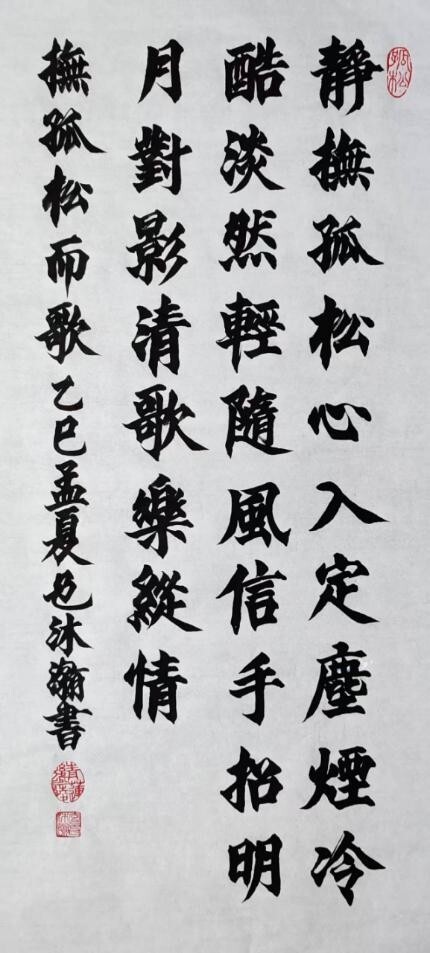 靜撫孤松心入定塵煙冷
酷淡然輕隨風信手招明
月對影清歌樂縱情
撫孤松而歌乙巳孟夏也沐瀚書